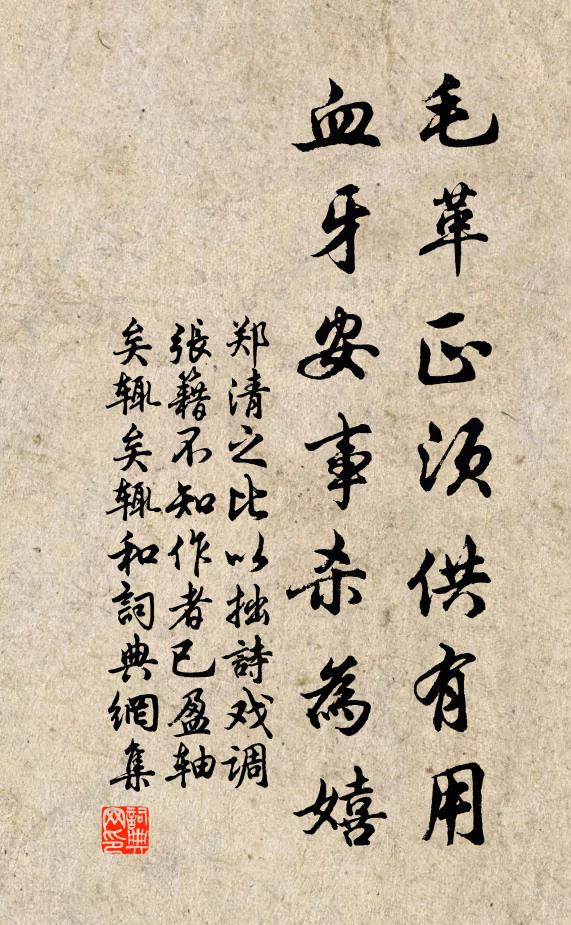 毛革正须供有用
血牙安事杀為嬉
郑清之比以拙詩戏调
張籍不知作者已盈轴
矣辄矣辄和詞典網集
詞典网印